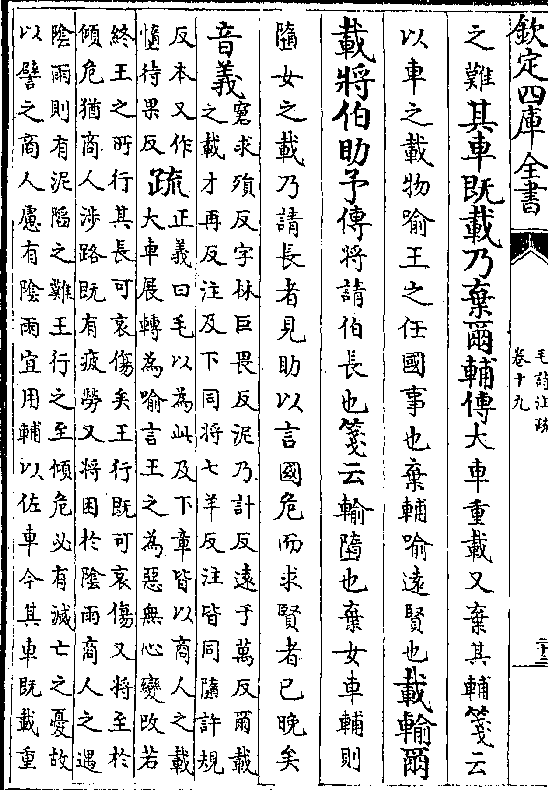 欽定四庫全書
毛詩注疏
卷十九
之難其車既載乃棄爾輔傳大車重載又棄其輔箋云
以車之載物喻王之任國事也棄輔喻遠賢也載輸爾
載將伯助予傳將請伯長也箋云輸隨也棄女車輔則
隨女之載乃請長者見助以言國危而求賢者已晚矣
音義
窘求殞反字林巨畏反泥乃計反遠于萬反爾載
之載才再反注及下同將七羊反注皆同隨許規
反本又作
隳待果反
疏
正義曰毛以為此及下章皆以商人之載
大車展轉為喻言王之為惡無心變改若
終王之所行其長可哀傷矣王行既可哀傷又將至於
傾危猶商人涉路既有疲勞又將困於陰雨商人之遇
陰雨則有泥陷之難王行之至傾危必有滅亡之憂故
以譬之商人慮有陰雨宜用輔以佐車今其車既載重